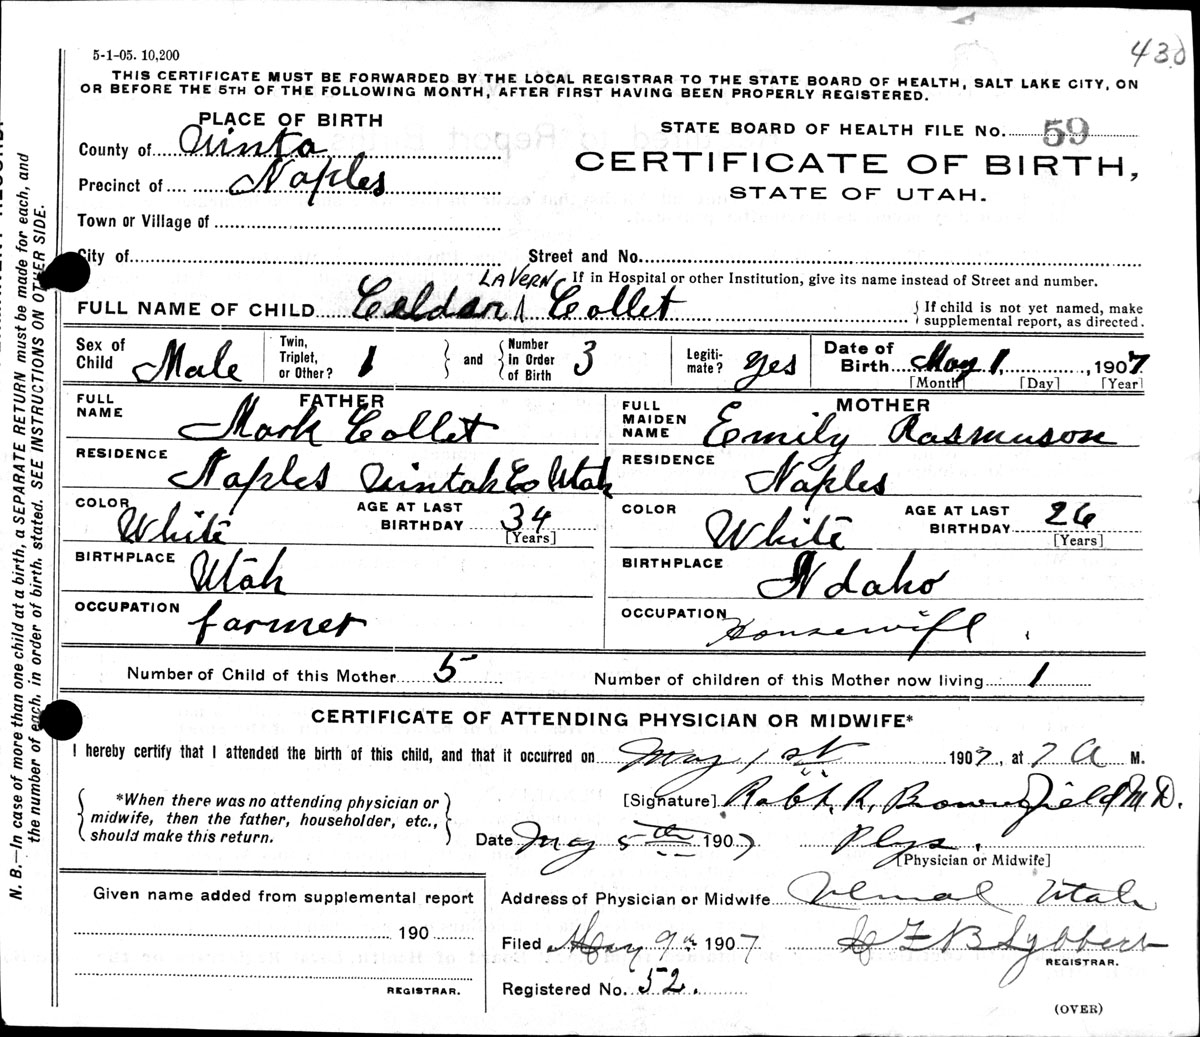 430
5-1-05. 10,200
THIS CERTIFICATE MUST BE FORWARDED BY THE LOCAL REGISTRAR TO THE STATE BOARD OF HEALTH, SALT LAKE CITY, ON
OR BEFORE THE 5TH OF THE FOLLOWING MONTH, AFTER FIRST HAVING BEEN PROPERLY REGISTERED.
PLACE OF BIRTH
STATE BOARD OF HEALTH FILE No. 59
County of Uinta
CERTIFICATE OF BIRTH,
Precinct of Naples
STATE OF UTAH.
Town or Village of
City of Street and No.
LAVERN If in Hospital or other Institution, give its name instead of Street and number.
FULL NAME OF CHILD Celdon Collet { If child is not yet named, make
supplemental report, as directed.
Sex of Child Male Twin, Triplet, or Other? 1 and Number in Order of Birth 3 Legiti- mate? yes Date of Birth May 1, 1907
[Month] [Day] [Year]
FATHER
FULL NAME Mark Collet
RESIDENCE Naples Uintah Co Utah
COLOR White AGE AT LAST BIRTHDAY 34 [Years]
BIRTHPLACE Utah
OCCUPATION farmer
MOTHER
FULL MAIDEN NAME Emily Rasmuson
RESIDENCE Naples
COLOR White AGE AT LAST BIRTHDAY 26 [Years]
BIRTHPLACE Idaho
OCCUPATION Housewife
Number of Child of this Mother 5 Number of children of this Mother now living 1
CERTIFICATE OF ATTENDING PHYSICIAN OR MIDWIFE*
I hereby certify that I attended the birth of this child, and that it occurred on May 1st 1907, at 7 A M.
*When there was no attending physician or
midwife, then the father, householder, etc.,
should make this return.
[Signature] Robt. R. Brownfield M.D.
Date May 5th 1907 Phys.
[Physician or Midwife]
Given name added from supplemental report
190
REGISTRAR.
Address of Physician or Midwife Vernal Utah
Filed May 9th 1907 Sybbert
REGISTRAR.
Registered No. 52.
(OVER)
N. B.—In case of more than one child at a birth, a SEPARATE RETURN must be made for each, and
the number of each, in order of birth, stated. SEE INSTRUCTIONS ON OTHER SIDE.